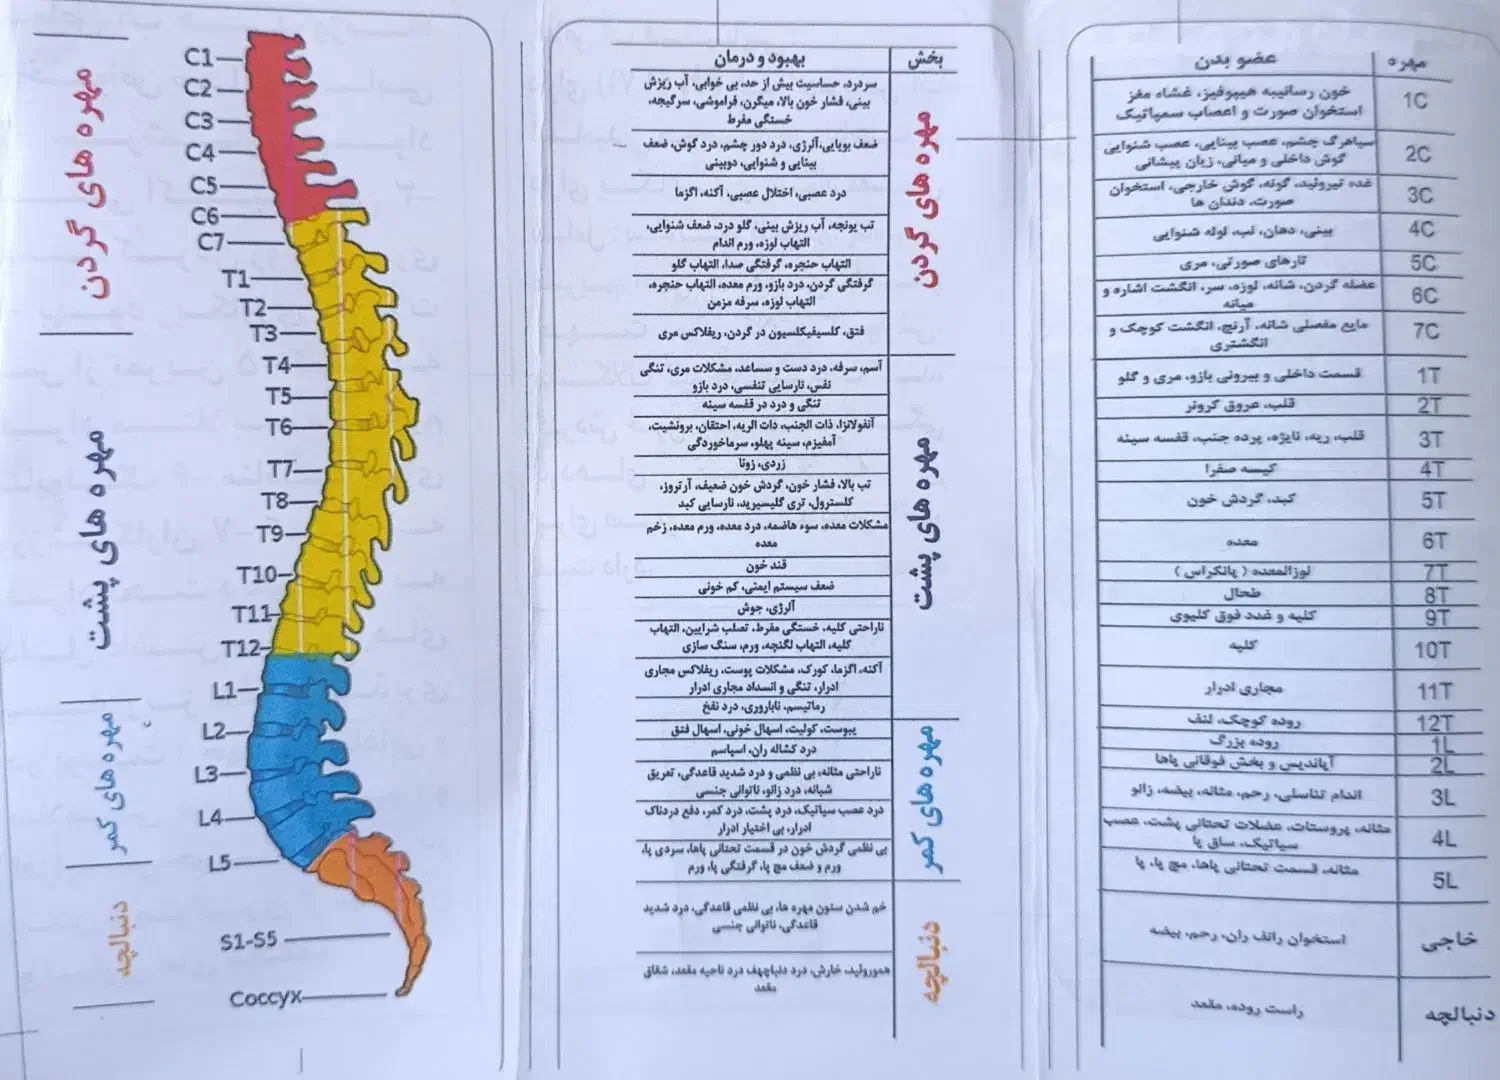 مهره های گردن
مهره های پشت
مهره های کمر
دنبالچه
C1
C2
C3
C4
C5
C6
C7
T1
T2
T3
T4
T5
T6
T7
T8
T9
T10
T11
T12
L1
L2
L3
L4
L5
S1-S5
Coccyx
بخش
بهبود و درمان
مهره های گردن
سردرد، حساسیت بیش از حد، بی خوابی، آب ریزش
بینی، فشار خون بالا، میگرن، فراموشی، سرگیجه،
خستگی مفرط
ضعف بویایی،آلرژی، درد دور چشم، درد گوش، ضعف
بینایی و شنوایی، دوبینی
درد عصبی، اختلال عصبی، آکنه، اگزما
تب یونجه، آب ریزش بینی، گلو درد، ضعف شنوایی،
التهاب لوزه، ورم اندام
التهاب حنجره، گرفتگی صدا، التهاب گلو
گرفتگی گردن، درد بازو، ورم معده، التهاب حنجره،
التهاب لوزه، سرفه مزمن
فتق، کلسیفیکلسیون در گردن، ریفلاکس مری
مهره های پشت
آسم، سرفه، درد دست و سساعد، مشکلات مری، تنگی
نفس، نارسایی تنفسی، درد بازو
تنگی و درد در قفسه سینه
آنفولانزا، ذات الجنب، ذات الریه، احتقان، برونشیت،
آمفیزم، سینه پهلو، سرماخوردگی
زردی، زونا
تب بالا، فشار خون، گردش خون ضعیف، آرتروز،
کلسترول، تری گلیسیرید، نارسایی کبد
مشکلات معده، سوء هاضمه، درد معده، ورم معده، زخم
معده
قند خون
ضعف سیستم ایمنی، کم خونی
آلرژی، جوش
ناراحتی کلیه، خستگی مفرط، تصلب شرایین، التهاب
کلیه، التهاب لگنچه، ورم، سنگ سازی
آکنه، اگزما، کورک، مشکلات پوست، ریفلاکس مجاری
ادرار، تنگی و انسداد مجاری ادرار
رماتیسم، ناباروری، درد نفخ
مهره های کمر
یبوست، کولیت، اسهال خونی، اسهال فتق
درد کشاله ران، اسپاسم
ناراحتی مثانه، بی نظمی و درد شدید قاعدگی، تعریق
شبانه، درد زانو، ناتوانی جنسی
درد عصب سیاتیک، درد پشت، درد کمر، دفع دردناک
ادرار، بی اختیار ادرار
بی نظمی گردش خون در قسمت تحتانی پاها، سردی پا،
ورم و ضعف مچ پا، گرفتگی پا، ورم
دنبالچه
خم شدن ستون مهره ها، بی نظمی قاعدگی، درد شدید
قاعدگی، ناتوانی جنسی
هموروئید، خارش، درد دنباچهف درد ناحیه مقعد، شقاق
مقعد
مهره
عضو بدن
1C
خون رسانیبه هیپوفیز، غشاء مغز
استخوان صورت و اعصاب سمپاتیک
2C
سیاهرگ چشم، عصب بینایی، عصب شنوایی
گوش داخلی و میانی، زبان پیشانی
3C
غده تیروئید، گونه، گوش خارجی، استخوان
صورت، دندان ها
4C
بینی، دهان، لب، لوله شنوایی
5C
تارهای صورتی، مری
6C
عضله گردن، شانه، لوزه، سر، انگشت اشاره و
میانه
7C
مایع مفصلی شانه، آرنج، انگشت کوچک و
انگشتری
1T
قسمت داخلی و بیرونی بازو، مری و گلو
2T
قلب، عروق کرونر
3T
قلب، ریه، نایژه، پرده جنب، قفسه سینه
4T
کیسه صفرا
5T
کبد، گردش خون
6T
معده
7T
لوزالمعده ( پانکراس )
8T
طحال
9T
کلیه و غدد فوق کلیوی
10T
کلیه
11T
مجاری ادرار
12T
روده کوچک، لنف
1L
روده بزرگ
2L
آپاندیس و بخش فوقانی پاها
3L
اندام تناسلی، رحم، مثانه، بیضه، زانو
4L
مثانه، پروستات، عضلات تحتانی پشت، عصب
سیاتیک، ساق پا
5L
مثانه، قسمت تحتانی پاها، مچ پا، پا
خاجی
استخوان رانف ران، رحم، بیضه
دنبالچه
راست روده، مقعد